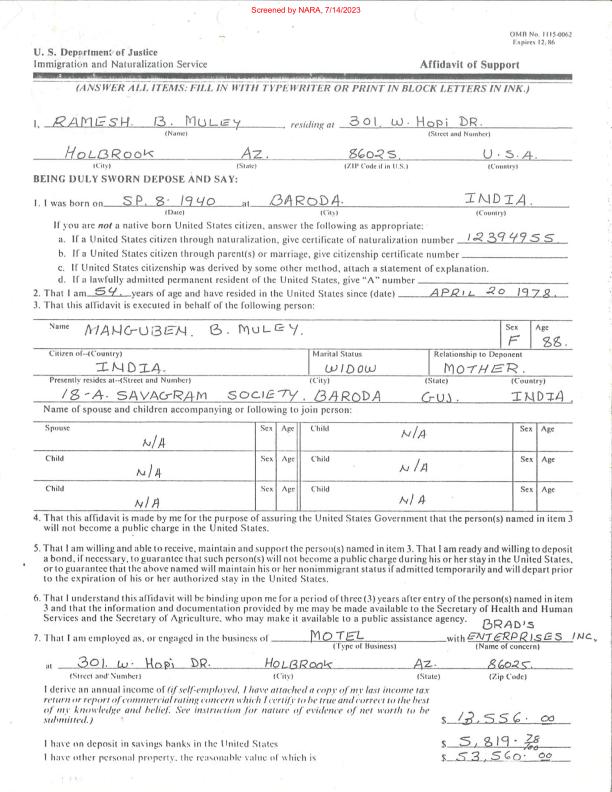 Screened by NARA, 7/14/2023
OMB No. 1115-0062
Expires 12, 86
U. S. Department of Justice
Immigration and Naturalization Service Affidavit of Support
(ANSWER ALL ITEMS: FILL IN WITH TYPEWRITER OR PRINT IN BLOCK LETTERS IN INK.)
I, RAMESH. B. MULEY, residing at 301. W. HOPI DR.
(Name) (Street and Number)
HOLBROOK AZ. 86025. U.S.A.
(City) (State) (ZIP Code if in U.S.) (Country)
BEING DULY SWORN DEPOSE AND SAY:
1. I was born on SP. 8. 1940 at BARODA. INDIA.
(Date) (City) (Country)
If you are not a native born United States citizen, answer the following as appropriate:
a. If a United States citizen through naturalization, give certificate of naturalization number 12394955
b. If a United States citizen through parent(s) or marriage, give citizenship certificate number
c. If United States citizenship was derived by some other method, attach a statement of explanation.
d. If a lawfully admitted permanent resident of the United States, give "A" number
2. That I am 54. years of age and have resided in the United States since (date) APRIL 20 1978.
3. That this affidavit is executed in behalf of the following person:
Name MANGUBEN. B. MULEY. Sex F Age 88.
Citizen of--(Country) Marital Status Relationship to Deponent
INDIA. WIDOW MOTHER.
Presently resides at--(Street and Number) (City) (State) (Country)
18-A. SAVAGRAM SOCIETY. BARODA GUJ. INDIA.
Name of spouse and children accompanying or following to join person:
Spouse N/A Sex Age Child N/A Sex Age
Child N/A Sex Age Child N/A Sex Age
Child N/A Sex Age Child N/A Sex Age
4. That this affidavit is made by me for the purpose of assuring the United States Government that the person(s) named in item 3
will not become a public charge in the United States.
5. That I am willing and able to receive, maintain and support the person(s) named in item 3. That I am ready and willing to deposit
a bond, if necessary, to guarantee that such person(s) will not become a public charge during his or her stay in the United States,
or to guarantee that the above named will maintain his or her nonimmigrant status if admitted temporarily and will depart prior
to the expiration of his or her authorized stay in the United States.
6. That I understand this affidavit will be binding upon me for a period of three (3) years after entry of the person(s) named in item
3 and that the information and documentation provided by me may be made available to the Secretary of Health and Human
Services and the Secretary of Agriculture, who may make it available to a public assistance agency.
BRAD'S
7. That I am employed as, or engaged in the business of MOTEL with ENTERPRISES INC.
(Type of Business) (Name of concern)
at 301. W. HOPI DR. HOLBROOK AZ. 86025.
(Street and Number) (City) (State) (Zip Code)
I derive an annual income of (if self-employed, I have attached a copy of my last income tax
return or report of commercial rating concern which I certify to be true and correct to the best
of my knowledge and belief. See instruction for nature of evidence of net worth to be
submitted.) $ 13,556.00
I have on deposit in savings banks in the United States $ 5,819.78/100
I have other personal property, the reasonable value of which is $ 53,560.00